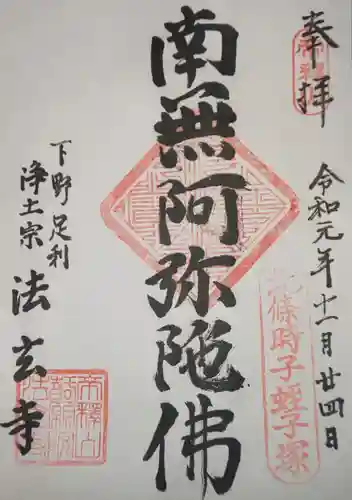 奉拝
令和元年十一月廿四日
北條時子蛭子塚
南無阿弥陀佛
下野足利
浄土宗
法玄寺